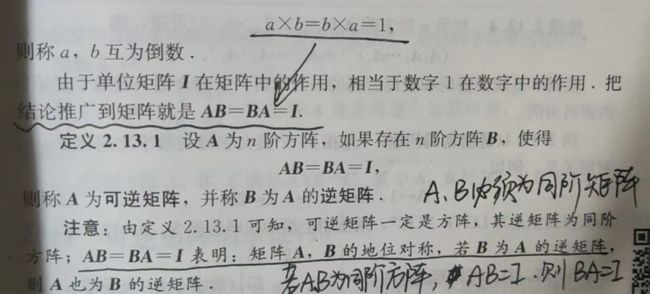 a×b=b×a=1,
则称 a，b 互为倒数．
由于单位矩阵 I 在矩阵中的作用，相当于数字 1 在数字中的作用．把
结论推广到矩阵就是 AB=BA=I.
定义 2.13.1 设 A 为 n 阶方阵，如果存在 n 阶方阵 B，使得
AB=BA=I，
则称 A 为可逆矩阵，并称 B 为 A 的逆矩阵． A、B必须为同阶矩阵
注意：由定义 2.13.1 可知，可逆矩阵一定是方阵，其逆矩阵为同阶
方阵；AB=BA=I 表明：矩阵 A，B 的地位对称，若 B 为 A 的逆矩阵，
则 A 也为 B 的逆矩阵． 若AB为同阶方阵， AB=I．则BA=I